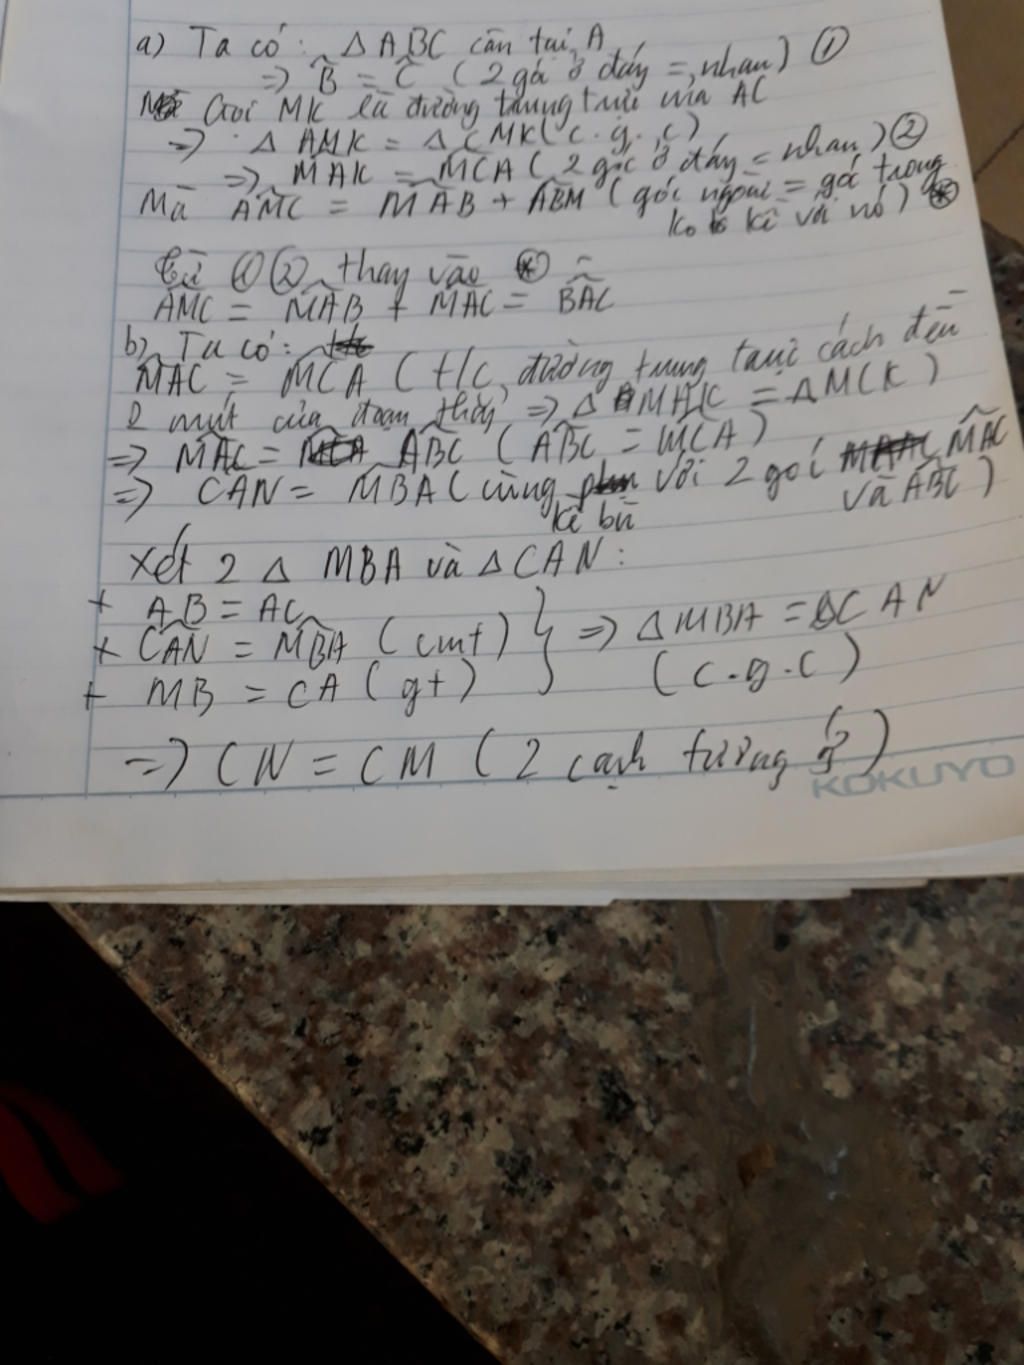 a) Ta có: ΔABC cân tại A
=> B̂ = Ĉ (2 góc ở đáy = nhau) ①
Gọi MK là đường trung trực của AC
=> ΔAMK = ΔCMK (c.g.c)
=> MAK = MCA (2 góc ở đáy = nhau) ②
Mà AMC = MAB + ABM (góc ngoài = góc trong
ko kề với nó) (*)
Từ ① ② thay vào (*)
AMC = MAB + MAC = BAC
b) Ta có:
MAC = MCA (t/c đường trung trực cách đều
2 mút của đoạn thẳng => ΔMAK = ΔMCK)
=> MAC = ABC (ABC = MCA)
=> CAN = MBA (cùng với 2 góc MAC
kề bù và ABC)
Xét 2 Δ MBA và ΔCAN:
+ AB = AC
+ CAN = MBA (cmt) } => ΔMBA = ΔCAN
+ MB = CA (gt) (c.g.c)
=> CN = CM (2 cạnh tương ứ)
KOKUYO